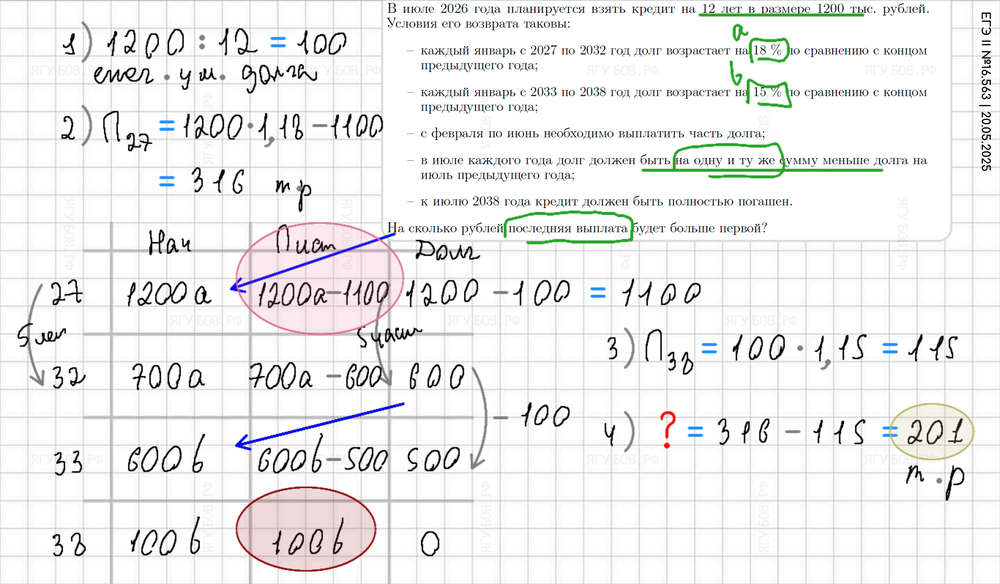 В июле 2026 года планируется взять кредит на 12 лет в размере 1200 тыс. рублей.
Условия его возврата таковы:
a
– каждый январь с 2027 по 2032 год долг возрастает на 18 % по сравнению с концом
предыдущего года;
b
– каждый январь с 2033 по 2038 год долг возрастает на 15 % по сравнению с концом
предыдущего года;
– с февраля по июнь необходимо выплатить часть долга;
– в июле каждого года долг должен быть на одну и ту же сумму меньше долга на
июль предыдущего года;
– к июлю 2038 года кредит должен быть полностью погашен.
На сколько рублей последняя выплата будет больше первой?
ЕГЭ II №16.563 | 20.05.2025
1) 1200 : 12 = 100
ежег. ум. долга
2) П27 = 1200·1,18 – 1100
= 316 т.р
Нач Плат Долг
27 1200a 1200a–1100 1200 – 100 = 1100
5 лет 5 част
32 700a 700a – 600 600
– 100
33 600b 600b–500 500
38 100b 100b 0
3) П38 = 100 · 1,15 = 115
4) ? = 316 – 115 = 201
т.р
ЯГУБОВ.РФ
ЯГУБОВ.РФ
ЯГУБОВ.РФ
ЯГУБОВ.РФ
ЯГУБОВ.РФ
ЯГУБОВ.РФ